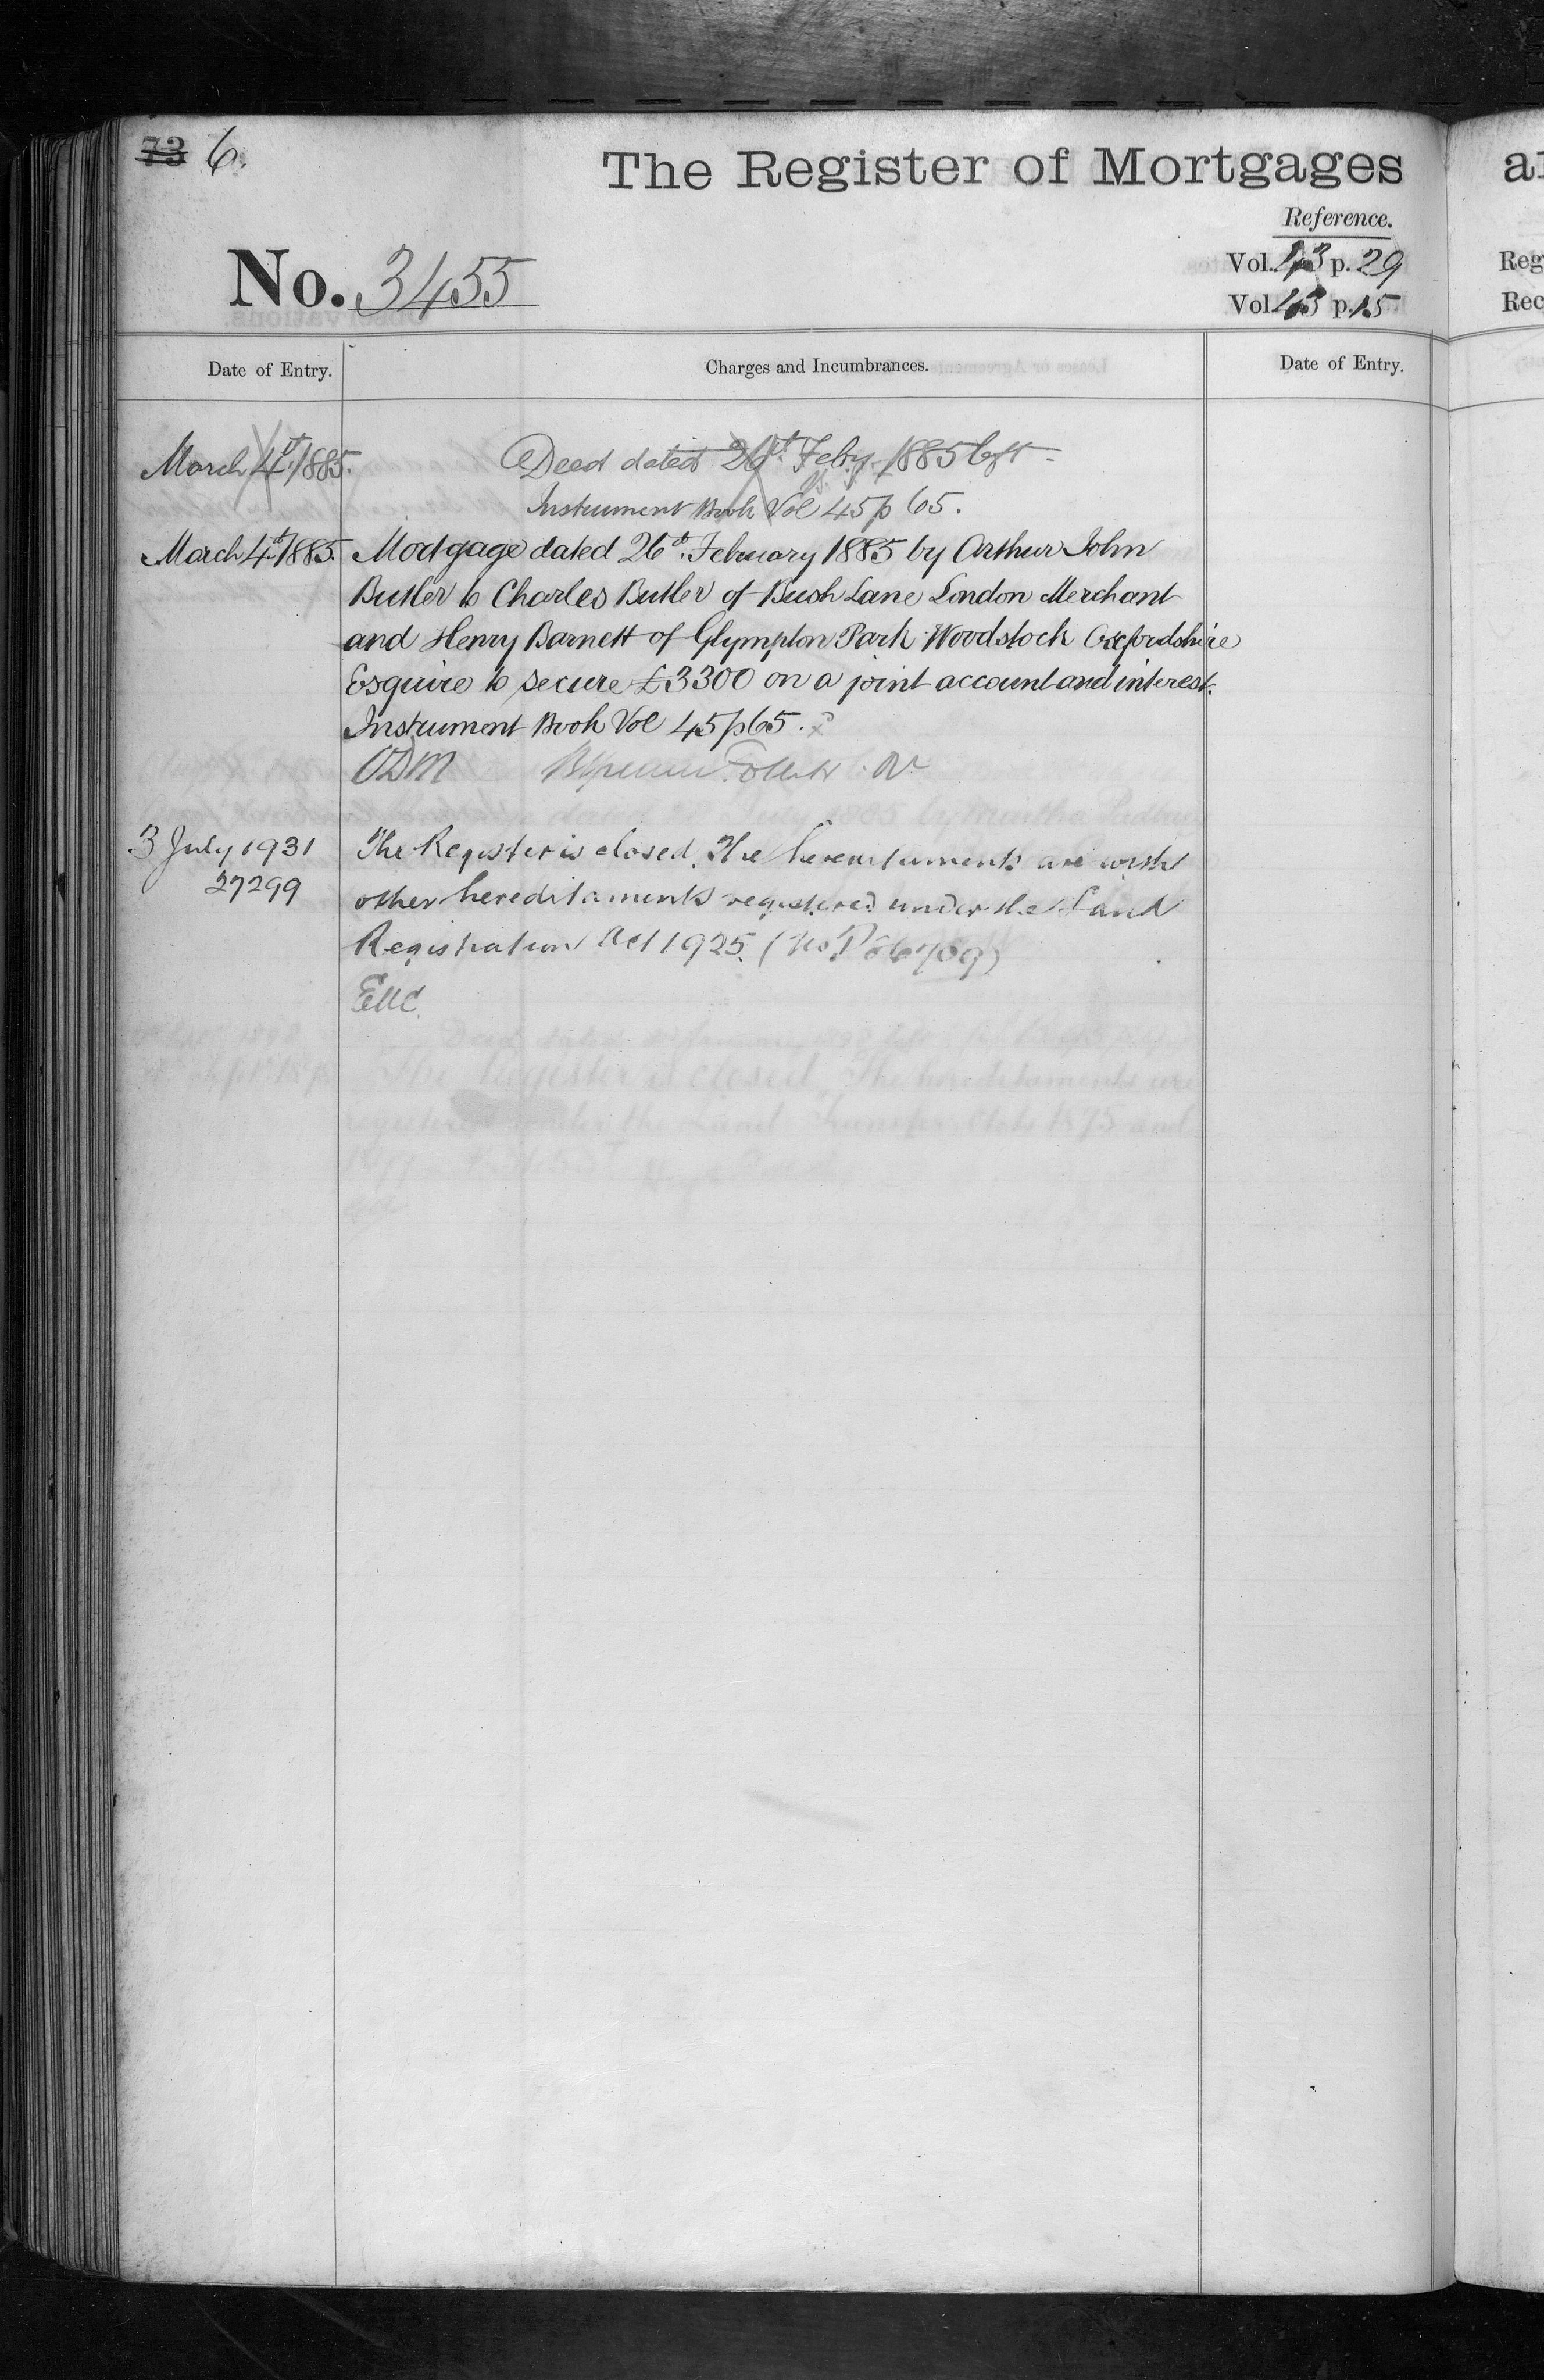 73 6.
The Register of Mortgages
Reference.
No. 3455
Vol. 43 p. 29
Vol. 43 p. 15
Date of Entry.
Charges and Incumbrances.
Date of Entry.
March 4th 1885.
Deed dated 26th Feby 1885 left
Instrument Book Vol 45 p 65.
March 4th 1885.
Mortgage dated 26th February 1885 by Arthur John
Butler to Charles Butler of Bush Lane London Merchant
and Henry Barnett of Glympton Park Woodstock Oxfordshire
Esquire to secure £3300 on a joint account and interest.
Instrument Book Vol 45 p 65.
ODM
3 July 1931
27299
The Register is closed. The hereditaments are with
other hereditaments registered under the Land
Registration Act 1925. (No P
The Register is closed. The hereditaments are
registered under the Land Transfer Acts 1875 and